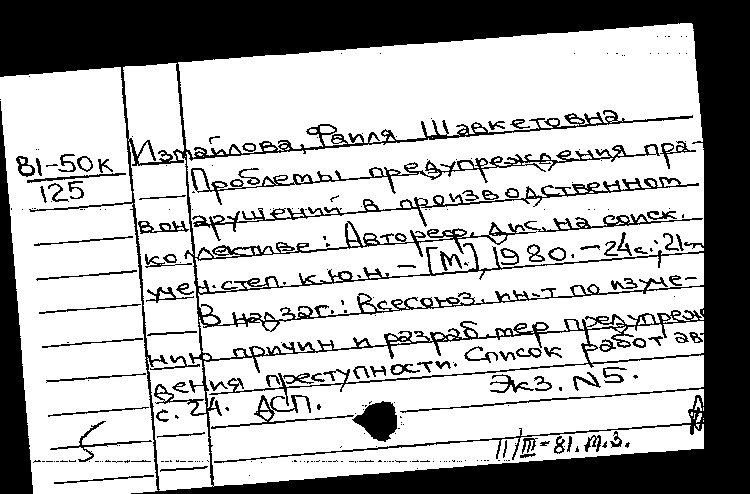 Измайлова, Фаиля Шавкетовна.
81-50к
125
Проблемы предупреждения пра-
вонарушений в производственном
коллективе: Автореф. дис. на соиск.
учен. степ. к.ю.н. – [М.], 1980. – 24с.; 21см
В надзаг.: Всесоюз. ин-т по изуче-
нию причин и разраб. мер предупреж
дения преступности. Список работ авт
с. 24. ДСП. Экз. N5.
5
11/III-81. М.З.